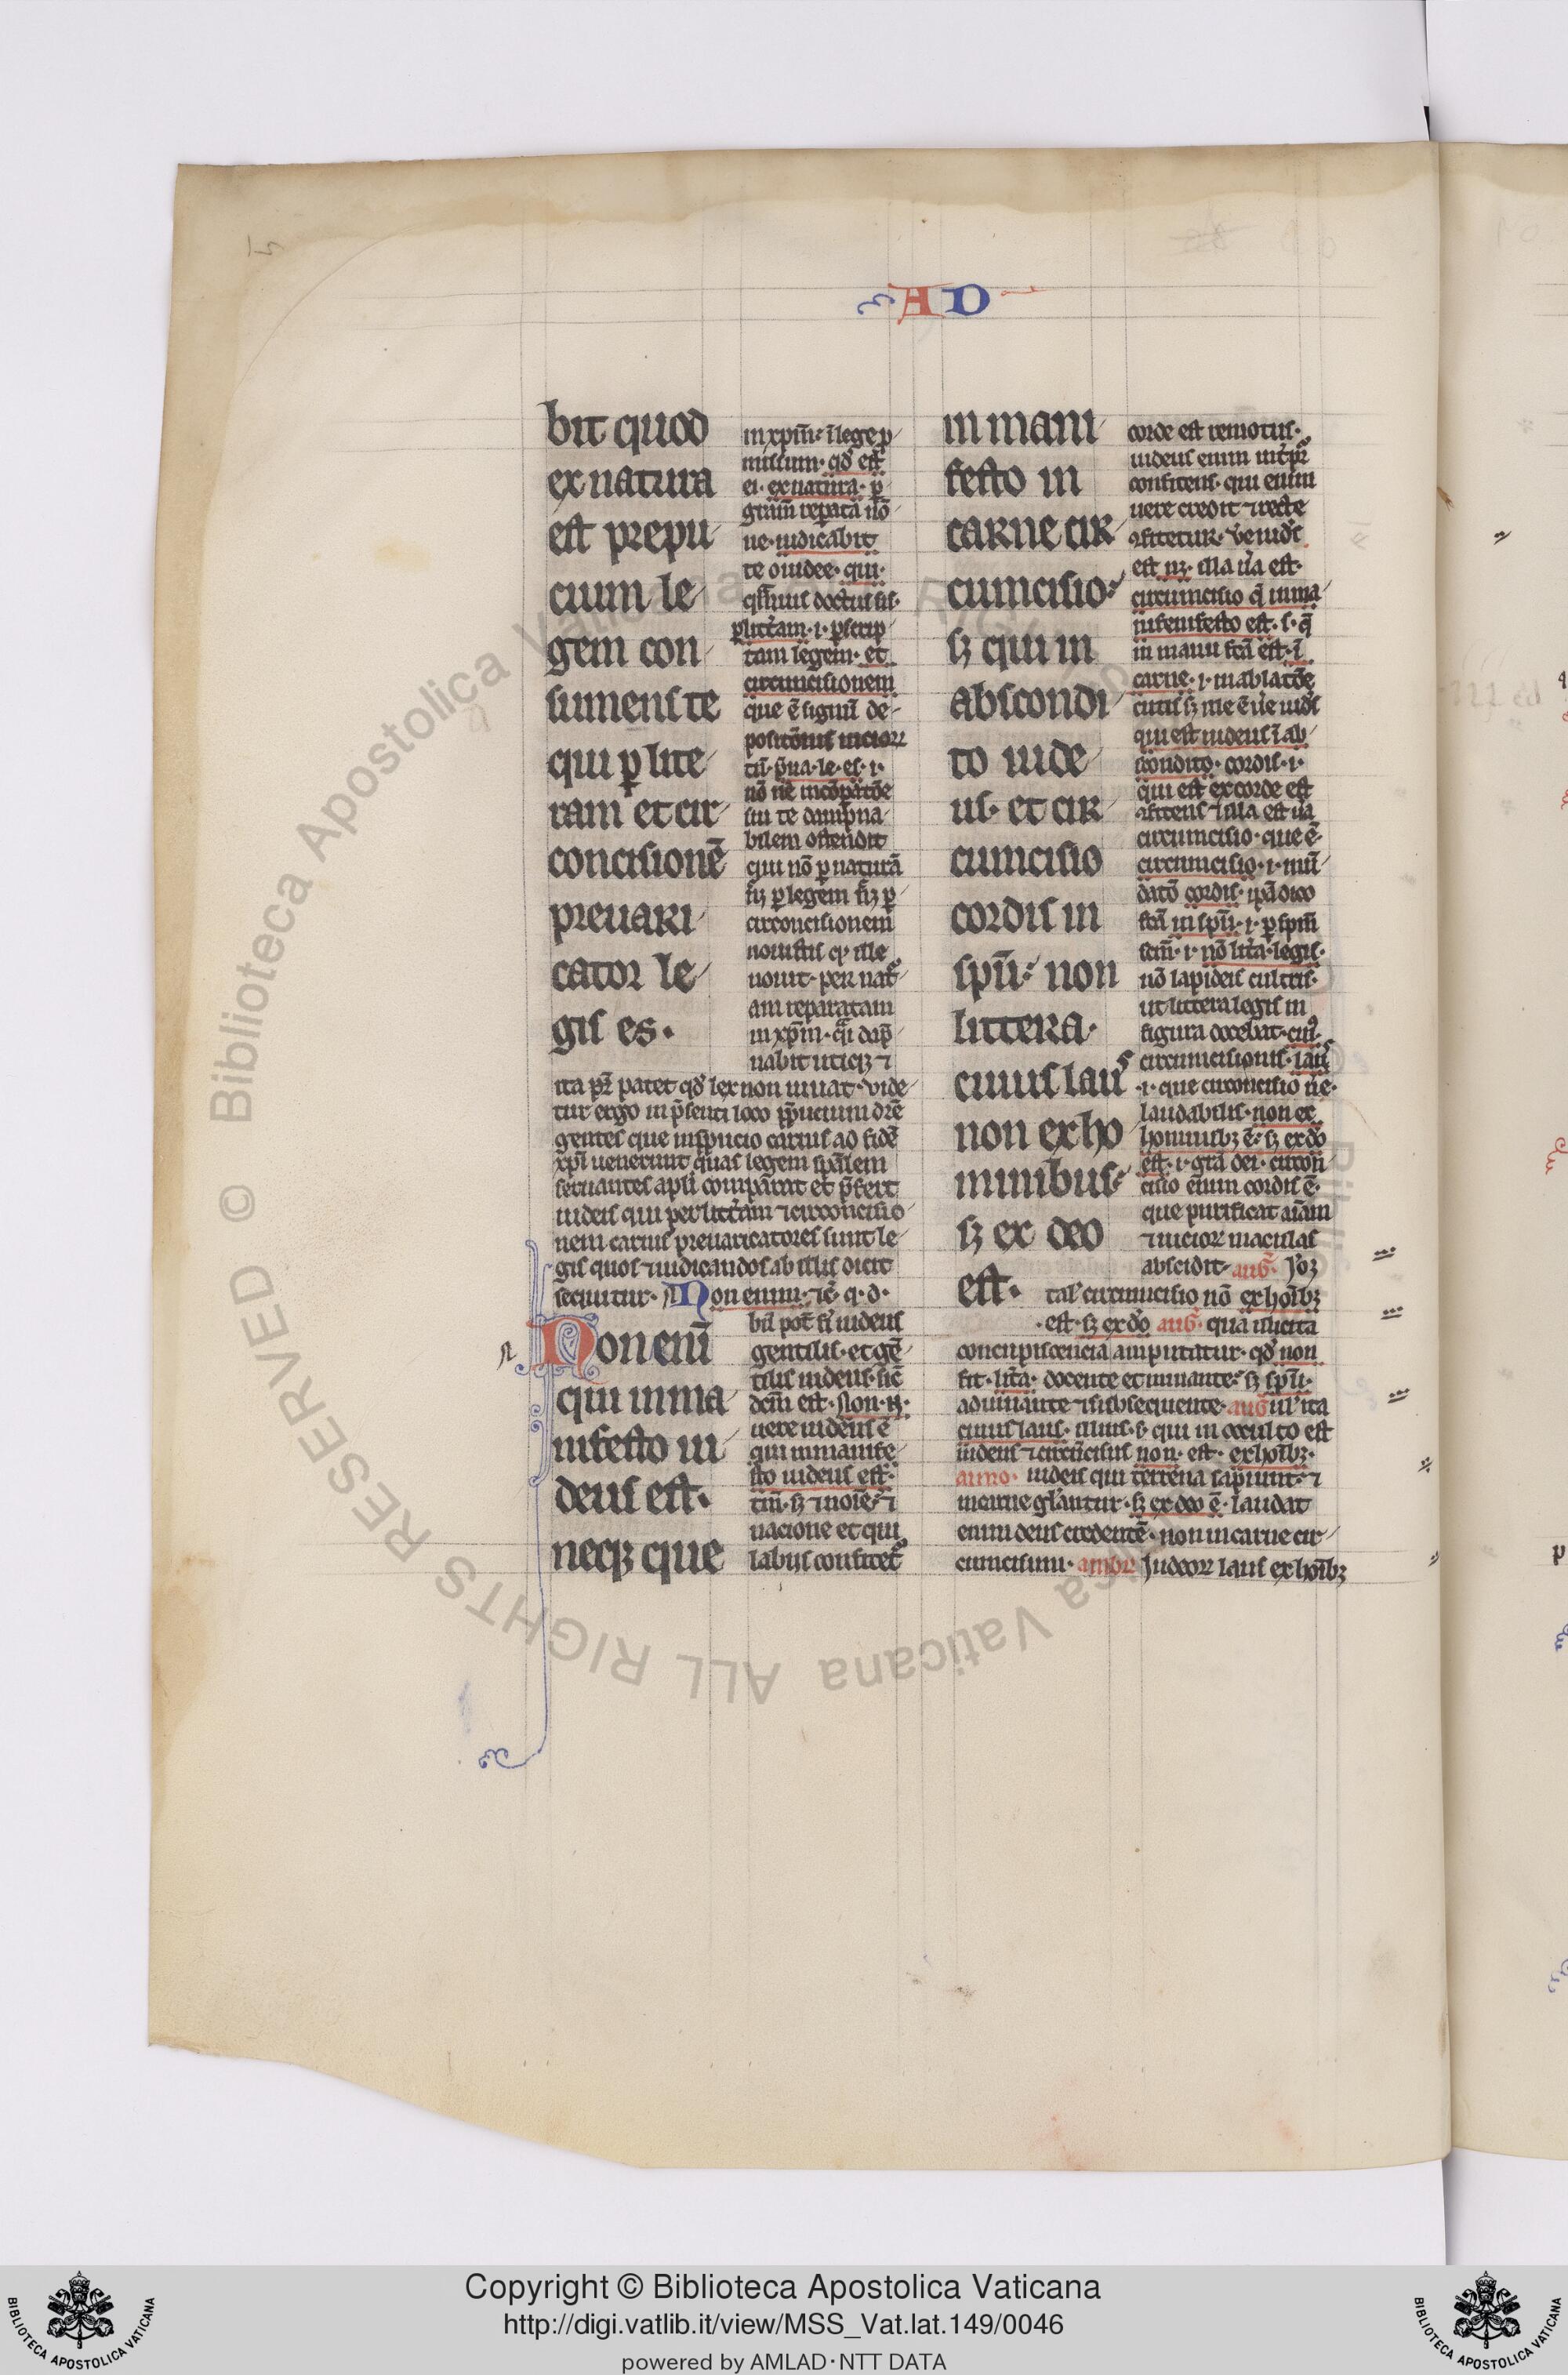 AD
bit quod
ex natura
est prepu
cium le
gem con
sumens te
qui ꝑ lite
ram et cir
concisionē
preuari
cator le
gis es.
in xp̄m: ī lege ꝑ
missum. qd̓ est
ei. ex natura. ꝑ
gr̄am reparatā nō
ue. iudicabit
te o iudee. qui.
ꝑ litt̓am. i. ꝑ scrip
tam legem. et
circumcisionem
que ē signū de
positōnis uicioꝝ
bilem ostendit
qui nō ꝑ naturā
sꝫ ꝑ legem sꝫ ꝑ
circoncisionem
nouistis ꝙ ille
nouit. per nat̓
am reparatam
nabit uticꝫ ⁊
ita patet qd̓ lex non iuuat. Vide
tur ergo in p̄senti loco
gentes que in p̄pucio carnis ad fidē
xp̄i uenerunt quas legem sp̄alem
seruantes apl̓i comparat et p̄fert
iudeis qui per litt̓am ⁊ circoncisio
nem carnis preuaricatores sunt le
gis quos ⁊ iudicandos ab illis dicit
sequitur. Non enim. ⁊c̄. q. d.
n
Non enī
qui in ma
nifesto iu
deus est.
neqꝫ que
bil̓ pot̄ iudeus
gentilis. et gē
tilis iudeus. sic̄
dem̄ est. Non. n̄.
uere iudeus ē
qui in manife
sto iudeus est.
tm̄. sꝫ ⁊ noīe: ⁊
uacione et qui
labiis confitet̓
in mani
festo in
carne cir
cumcisio:
sꝫ qui in
abscondi
to iude
us. et cir
cumcisio
cordis in
spū: non
littera.
cuius laus
non ex ho
minibus:
sꝫ ex deo
est.
corde est remotus.
iudeus enim int̓pr̄
confitens. qui enim
uere credit ⁊ recte
est n̄. illa u̓a est.
circumcisio q̄ in ma
nifensfesto est. s. q̄
in manu fc̄a est. ī
carne. i. in ablatōe
cutis sꝫ ille ē ue iuds̓
qui est iudeus ī ab
scondito. cordis. i.
qui est ex corde est
ꝯfitens ⁊ illa est ua
circumcisio. que ē.
circumcisio. i. mū
datō cordis. ip̄a dico
fc̄a in spū. i. ꝑ sp̄m
scm̄. i. nō litt̓a. legis.
nō lapideis cultris.
ut littera legis in
figura docebat. cui᷒.
circumcisionis. laus
.i. que circoncisio ue.
laudabilis. non ex
hominibꝫ ē: sꝫ ex do
est. i. gr̄a dei. circon
cisio enim cordis ē.
que purificat aīam
⁊ uicioꝝ maculas
abscidit. aug̓.
tal̓ circumcisio nō ex hoībꝫ
.est. sꝫ ex do aug̓. qua illicita
concupiscencia amputatur. qd̓ non
fit. litt̓a. docente et minante: sꝫ spū.
adiuuante ⁊ subsequente. aug̓ ul̓ ita
cuius laus. illius. s. qui in occulto est
iudeus ⁊ circūcisus non. est. ex hoībꝫ.
iudeis qui terrena sapiunt: ⁊
in carne gl̓antur. sꝫ ex deo ē. laudat
enim deus credentē. non in carne cir
cumcisum. ambr̄ Iudeoꝝ laus ex hoībꝫ
Copyright © Biblioteca Apostolica Vaticana
http://digi.vatlib.it/view/MSS_Vat.lat.149/0046
powered by AMLAD·NTT DATA
BIBLIOTECA APOSTOLICA VATICANA
BIBLIOTECA APOSTOLICA VATICANA
© Biblioteca Apostolica Vaticana ALL RIGHTS RESERVED